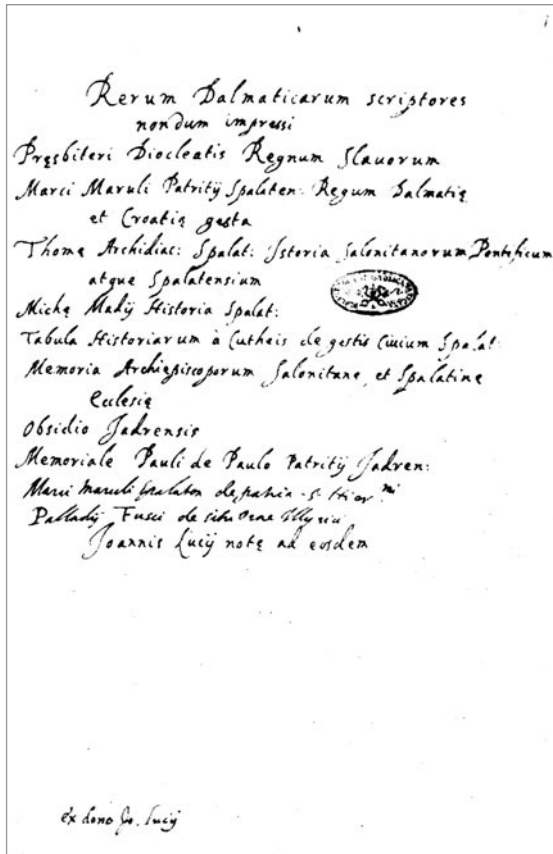 1
Rerum Dalmaticarum scriptores
nondum impressi
Pręsbiteri Diocleatis Regnum Slauorum
Marci Maruli Patritij Spalaten: Regum Dalmatię
et Croatię gesta
Thomę Archidiac: Spalat: Istoria Salonitanorum Pontificum
atque Spalatensium
Michę Madij Historia Spalat:
Tabula Historiarum à Cutheis de gestis Ciuium Spalat:
Memoria Archiepiscoporum Salonitanę, et Spalatinę
Eclesię
Obsidio Jadrensis
Memoriale Pauli de Paulo Patritij Jadren:
Marci Maruli Spalaten de patria S. Hier.mi
Palladij Fusci de situ Orae Illyrici
Joannis Lucij notę ad eosdem
ex dono Jo. Lucij